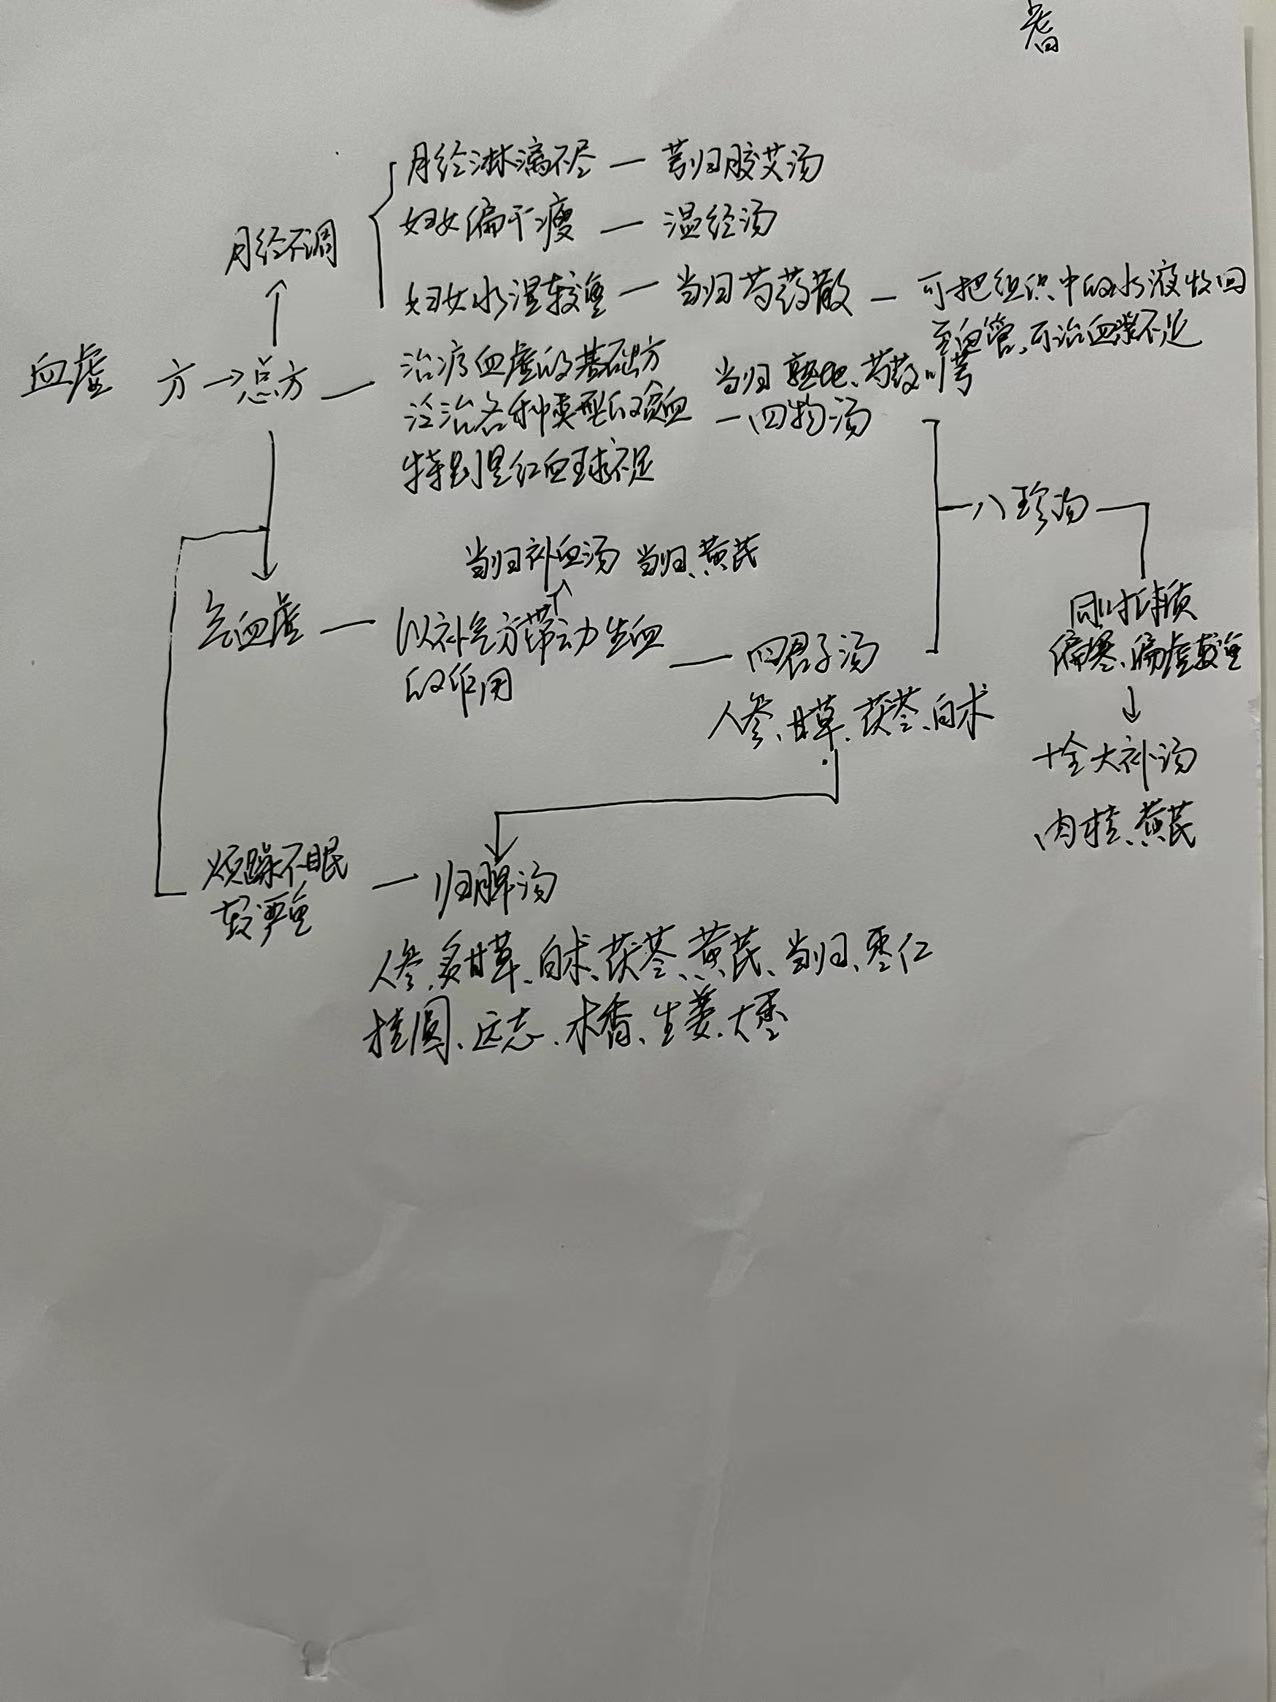 耆
月经淋漓不尽 — 芎归胶艾汤
妇女偏干瘦 — 温经汤
月经不调
妇女水湿较重 — 当归芍药散 — 可把组织中的水液收回
至血管,可治血浆不足
血虚 方→总方 — 治疗血虚的基础方
当归、熟地、芍药、川芎
泛治各种类型的贫血 — 四物汤
特别是红血球不足
八珍汤
当归补血汤 当归、黄芪
气血虚 — 以补气方带动生血
的作用 — 四君子汤
人参、甘草、茯苓、白术
同时体质
偏寒、偏虚较重
↓
十全大补汤
肉桂、黄芪
烦躁不眠 — 归脾汤
较严重
人参、炙甘草、白术、茯苓、黄芪、当归、枣仁
桂圆、远志、木香、生姜、大枣